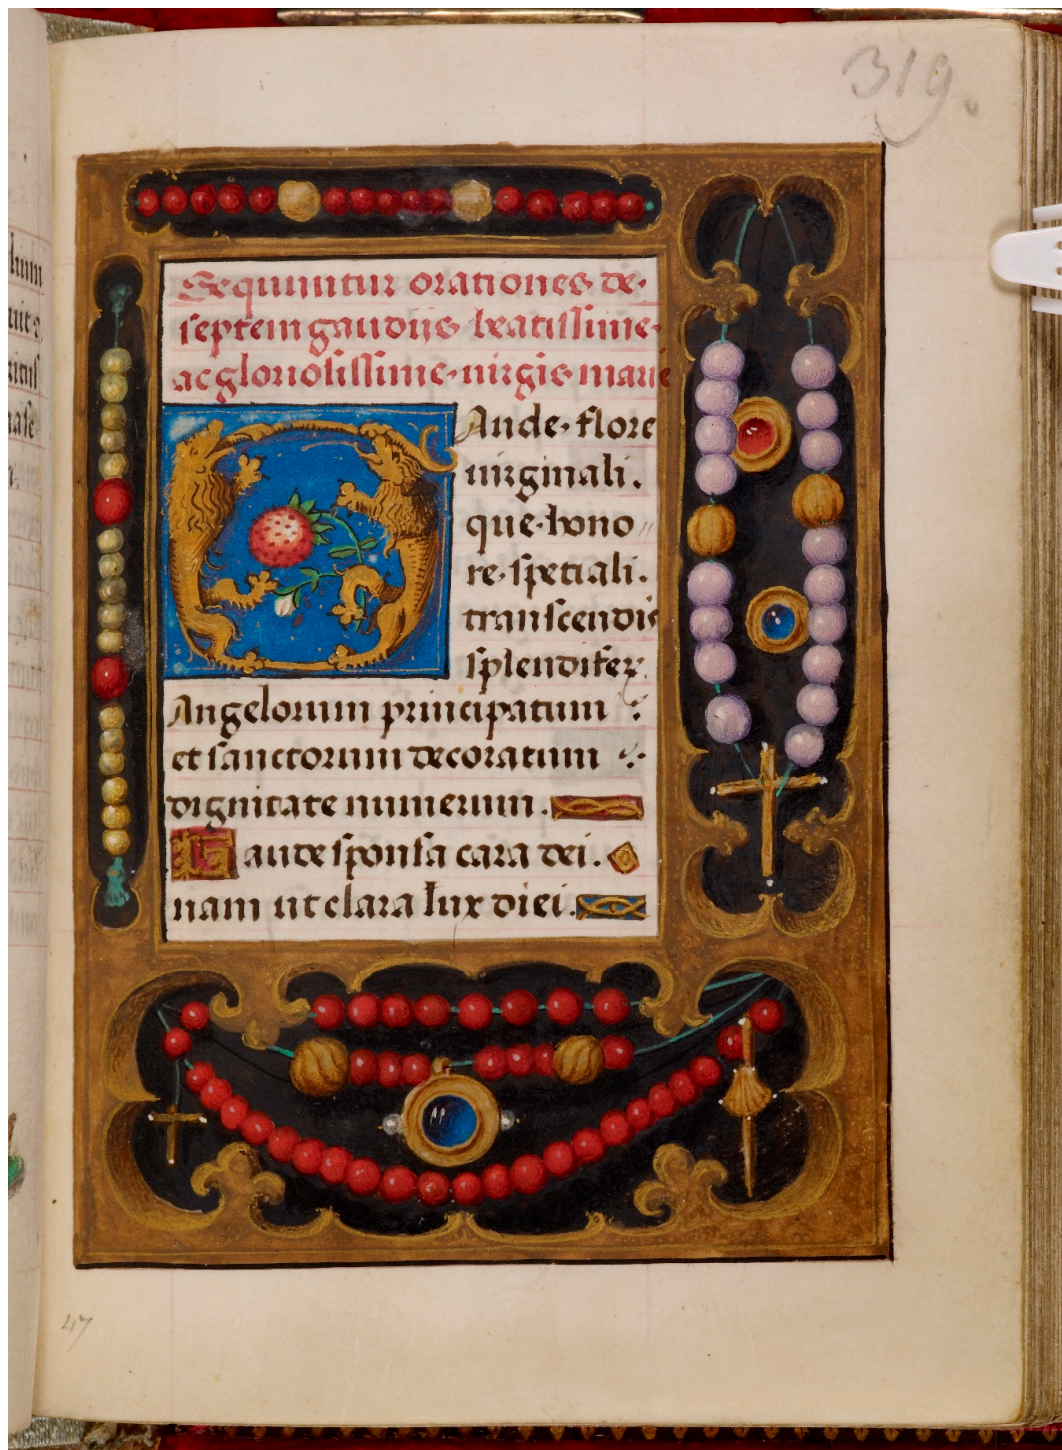 319.
Sequuntur orationes de·
septem gaudijs beatissime·
ac gloriosissime·uirgīs marie
Gaude·flore
uirginali.
que·hono
re·speciali.
transcendis
splendifer
Angelorum principatum
et sanctorum decoratum
dignitate numerum.
Gaude sponsa cara dei.
nam ut clara lux diei.
47